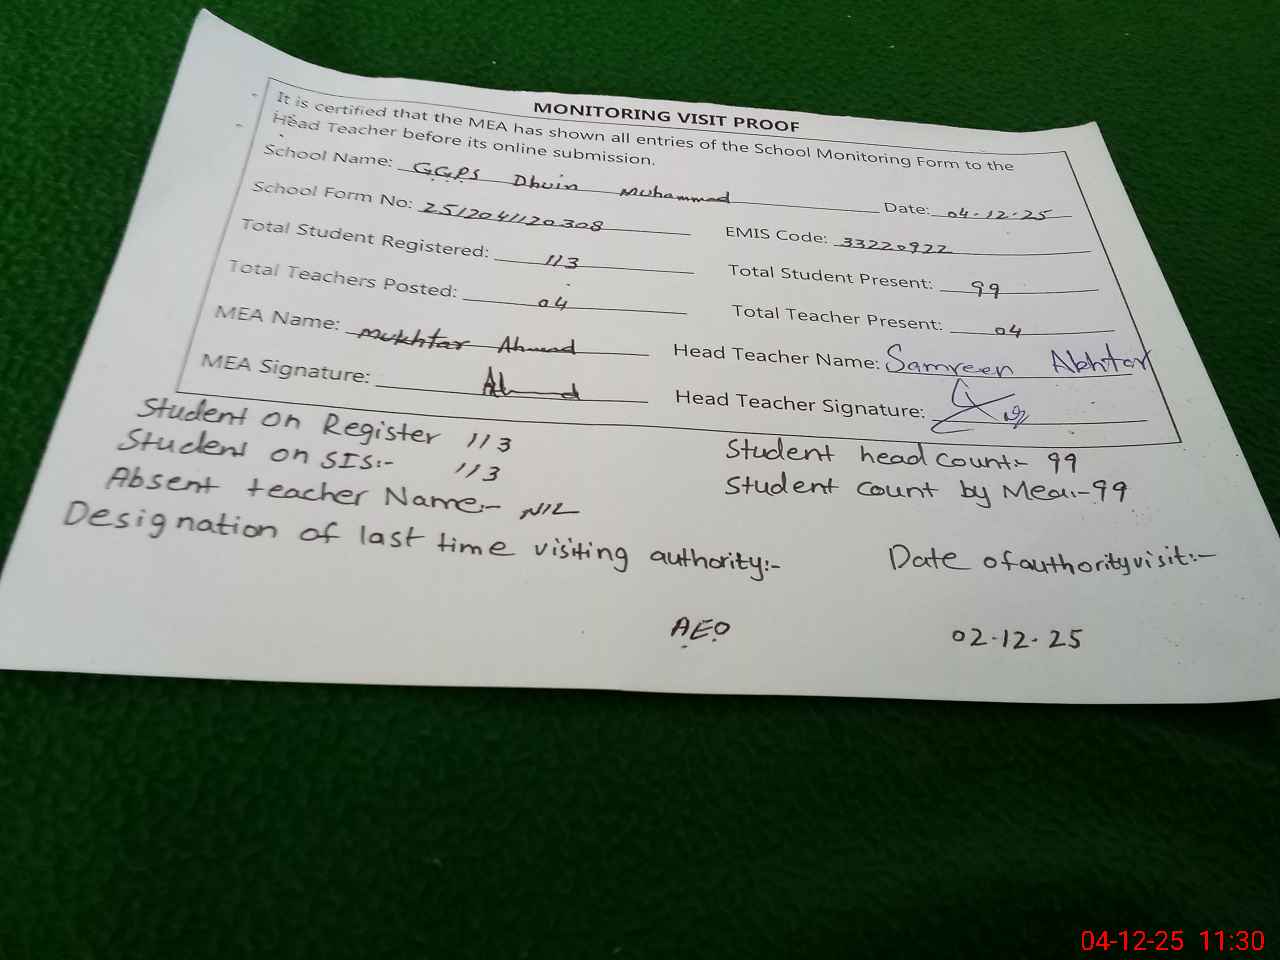 MONITORING VISIT PROOF
It is certified that the MEA has shown all entries of the School Monitoring Form to the
Head Teacher before its online submission.
School Name: GGPS Dhuin Muhammad Date: 04-12-25
School Form No: 2512041120308 EMIS Code: 33220922
Total Student Registered: 113 Total Student Present: 99
Total Teachers Posted: 04 Total Teacher Present: 04
MEA Name: Mukhtar Ahmad Head Teacher Name: Samreen Akhtar
MEA Signature: Head Teacher Signature:
Student on Register 113
Student on SIS:- 113 Student head count:- 99
Absent teacher Name:- NIL Student count by Mea:- 99
Designation of last time visiting authority:- Date of authority visit:-
AEO 02-12-25
04-12-25 11:30